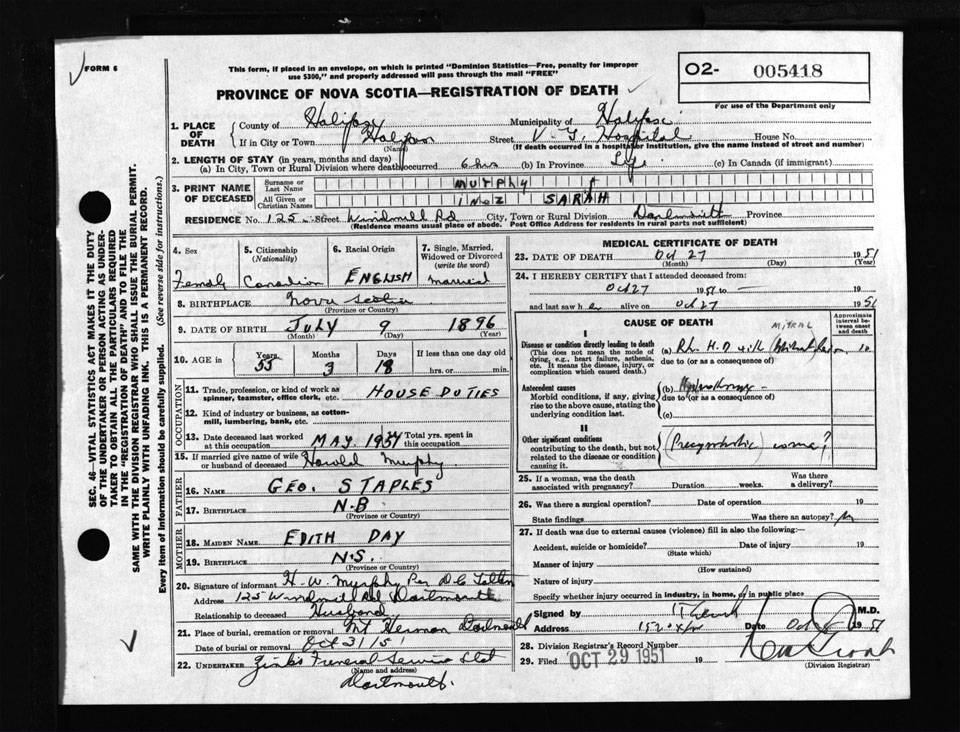 FORM 6
This form, if placed in an envelope, on which is printed "Dominion Statistics—Free, penalty for improper
use $300," and properly addressed will pass through the mail "FREE"
O2- 005418
For use of the Department only
PROVINCE OF NOVA SCOTIA—REGISTRATION OF DEATH
1. PLACE OF DEATH
County of Halifax Municipality of Halifax
If in City or Town Halifax Street V. G. Hospital House No.
(Name) (If death occurred in a hospital or institution, give the name instead of street and number)
2. LENGTH OF STAY (in years, months and days)
(a) In City, Town or Rural Division where death occurred 6 hrs (b) In Province Life (c) In Canada (if immigrant)
3. PRINT NAME OF DECEASED
Surname or Last Name MURPHY
All Given or Christian Names INEZ SARAH
RESIDENCE No. 125 Street Windmill Rd City, Town or Rural Division Dartmouth Province
(Residence means usual place of abode. Post Office Address for residents in rural parts not sufficient)
4. Sex Female
5. Citizenship (Nationality) Canadian
6. Racial Origin ENGLISH
7. Single, Married, Widowed or Divorced (write the word) Married
8. BIRTHPLACE Nova Scotia
(Province or Country)
9. DATE OF BIRTH July 9 1896
(Month) (Day) (Year)
10. AGE in Years 55 Months 3 Days 18 If less than one day old
hrs. or min.
OCCUPATION
11. Trade, profession, or kind of work as spinner, teamster, office clerk, etc. HOUSE DUTIES
12. Kind of industry or business, as cotton-mill, lumbering, bank, etc.
13. Date deceased last worked at this occupation MAY 1951 Total yrs. spent in this occupation
15. If married give name of wife or husband of deceased Harold Murphy
FATHER
16. NAME GEO. STAPLES
17. BIRTHPLACE N.B
(Province or Country)
MOTHER
18. MAIDEN NAME EDITH DAY
19. BIRTHPLACE N.S.
(Province or Country)
20. Signature of informant H. W. Murphy Per
Address 125 Windmill Rd Dartmouth
Relationship to deceased Husband
21. Place of burial, cremation or removal Mt Herman Dartmouth
Date of burial or removal Oct 31/51
22. UNDERTAKER Zink's Funeral Service Ltd
(Name and address)
Dartmouth.
MEDICAL CERTIFICATE OF DEATH
23. DATE OF DEATH Oct 27 1951
(Month) (Day) (Year)
24. I HEREBY CERTIFY that I attended deceased from:
Oct 27 1951 to — 19
and last saw her alive on Oct 27 1951
CAUSE OF DEATH
Approximate interval between onset and death
I
Disease or condition directly leading to death
(This does not mean the mode of dying, e.g., heart failure, asthenia, etc. It means the disease, injury, or complication which caused death.)
MITRAL
(a) Rh. H. D with 10
due to (or as a consequence of)
Antecedent causes
Morbid conditions, if any, giving rise to the above cause, stating the underlying condition last.
(b)
due to (or as a consequence of)
(c)
II
Other significant conditions
contributing to the death, but not related to the disease or condition causing it.
coma?
25. If a woman, was the death associated with pregnancy? Duration weeks. Was there a delivery?
26. Was there a surgical operation? Date of operation 19
State findings Was there an autopsy? No
27. If death was due to external causes (violence) fill in also the following:—
Accident, suicide or homicide? Date of injury 19
(State which)
Manner of injury
(How sustained)
Nature of injury
Specify whether injury occurred in industry, in home, or in public place
Signed by M.D.
Address Date Oct 1951
28. Division Registrar's Record Number
29. Filed OCT 29 1951 19
(Division Registrar)
SEC. 46—VITAL STATISTICS ACT MAKES IT THE DUTY
OF THE UNDERTAKER OR PERSON ACTING AS UNDER-
TAKER TO OBTAIN ALL THE PARTICULARS REQUIRED
IN THE "REGISTRATION OF DEATH" AND TO FILE THE
SAME WITH THE DIVISION REGISTRAR WHO SHALL ISSUE THE BURIAL PERMIT.
WRITE PLAINLY WITH UNFADING INK. THIS IS A PERMANENT RECORD.
Every item of information should be carefully supplied. (See reverse side for instructions.)